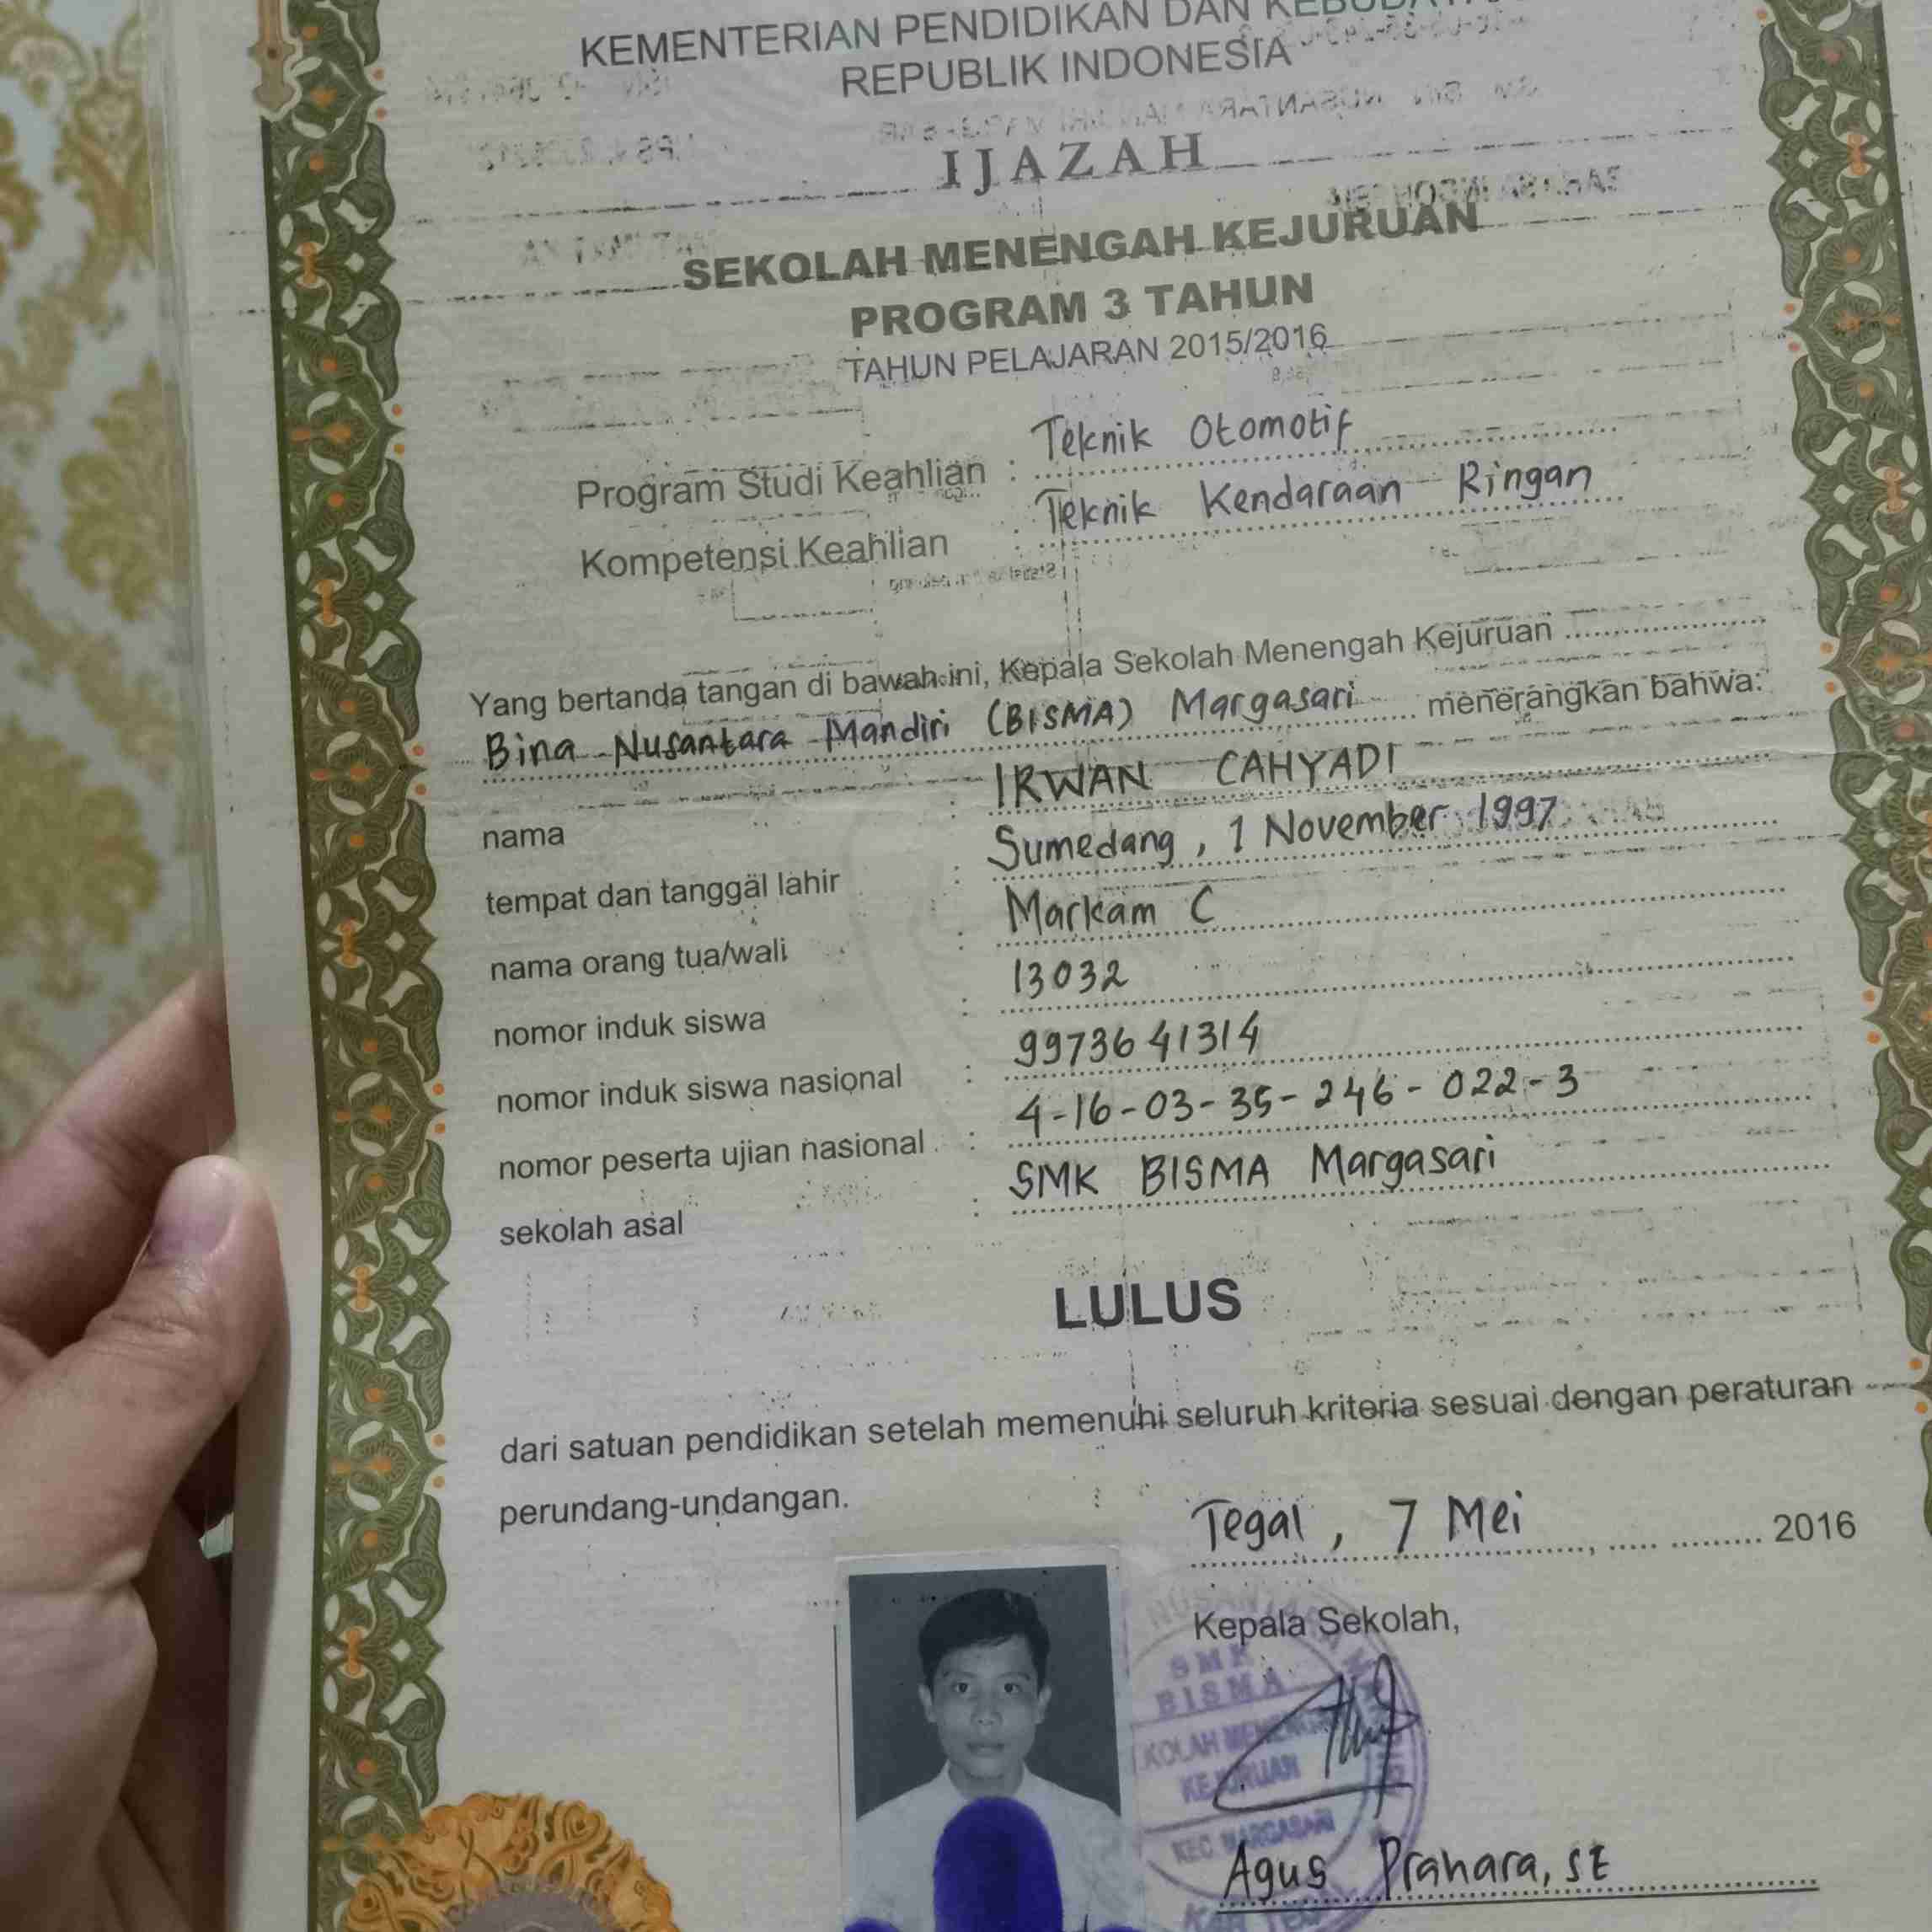 KEMENTERIAN PENDIDIKAN DAN
REPUBLIK INDONESIA
IJAZAH
SEKOLAH MENENGAH KEJURUAN
PROGRAM 3 TAHUN
TAHUN PELAJARAN 2015/2016
Program Studi Keahlian : Teknik Otomotif
Kompetensi Keahlian : Teknik Kendaraan Ringan
Yang bertanda tangan di bawah ini, Kepala Sekolah Menengah Kejuruan
Bina Nusantara Mandiri (BISMA) Margasari menerangkan bahwa:
nama : IRWAN CAHYADI
tempat dan tanggal lahir : Sumedang, 1 November 1997
nama orang tua/wali : Markam C
nomor induk siswa : 13032
nomor induk siswa nasional : 9973641314
nomor peserta ujian nasional : 4-16-03-35-246-022-3
sekolah asal : SMK BISMA Margasari
LULUS
dari satuan pendidikan setelah memenuhi seluruh kriteria sesuai dengan peraturan
perundang-undangan.
Tegal, 7 Mei 2016
Kepala Sekolah,
SMK
BISMA
KEJURUAN
KEC. MARGASARI
Agus Prahara, ST